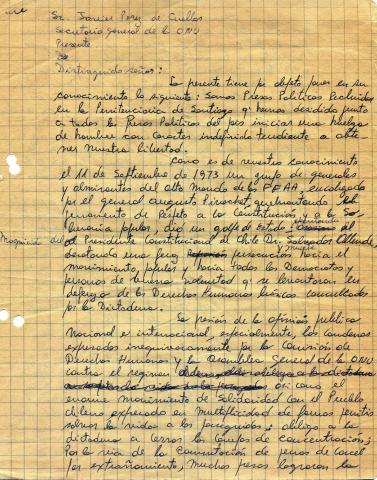 Sr. Javier Pérez de Cuellar
Secretario General de la ONU
Presente
Distinguido señor:
La presente tiene por objeto poner en su
conocimiento lo siguiente: Somos Presos Políticos Recluidos
en la Penitenciaria de Santiago q' hemos decidido junto
a todos los Presos Políticos del país iniciar una huelga
de hambre con caracter indefinido tendiente a obte-
ner nuestra libertad.
Como es de vuestro conocimiento
el 11 de Septiembre de 1973 un grupo de generales
y almirantes del Alto Mando de las FFAA, encabezado
por el general Augusto Pinochet, quebrantando
juramento de Respeto a la Constitución y a la So-
berania popular, dió un golpe de estado
Magnicidio del Presidente Constitucional de Chile Dr. Salvador Allende,
desatando una feroz persecución y muerte hacia el
movimiento popular y hacia todos los Democratas y
personas de buena voluntad q' se levantaron en
defensa de los Derechos Humanos básicos conculcados
por la Dictadura.
La presión de la opinión publica
Nacional e internacional, especialmente, las condenas
expresadas inequivocamente por la Comisión de
Derechos Humanos y la Asamblea General de la ONU
contra el regimen
así como el
enorme movimiento de Solidaridad con el Pueblo
chileno expresado en multiplicidad de formas permitió
salvar la vida a los perseguidos; obligó a la
dictadura a cerrar los Campos de concentración;
Por la via de la Conmutación de penas de carcel
por extrañamiento, muchos presos lograron la